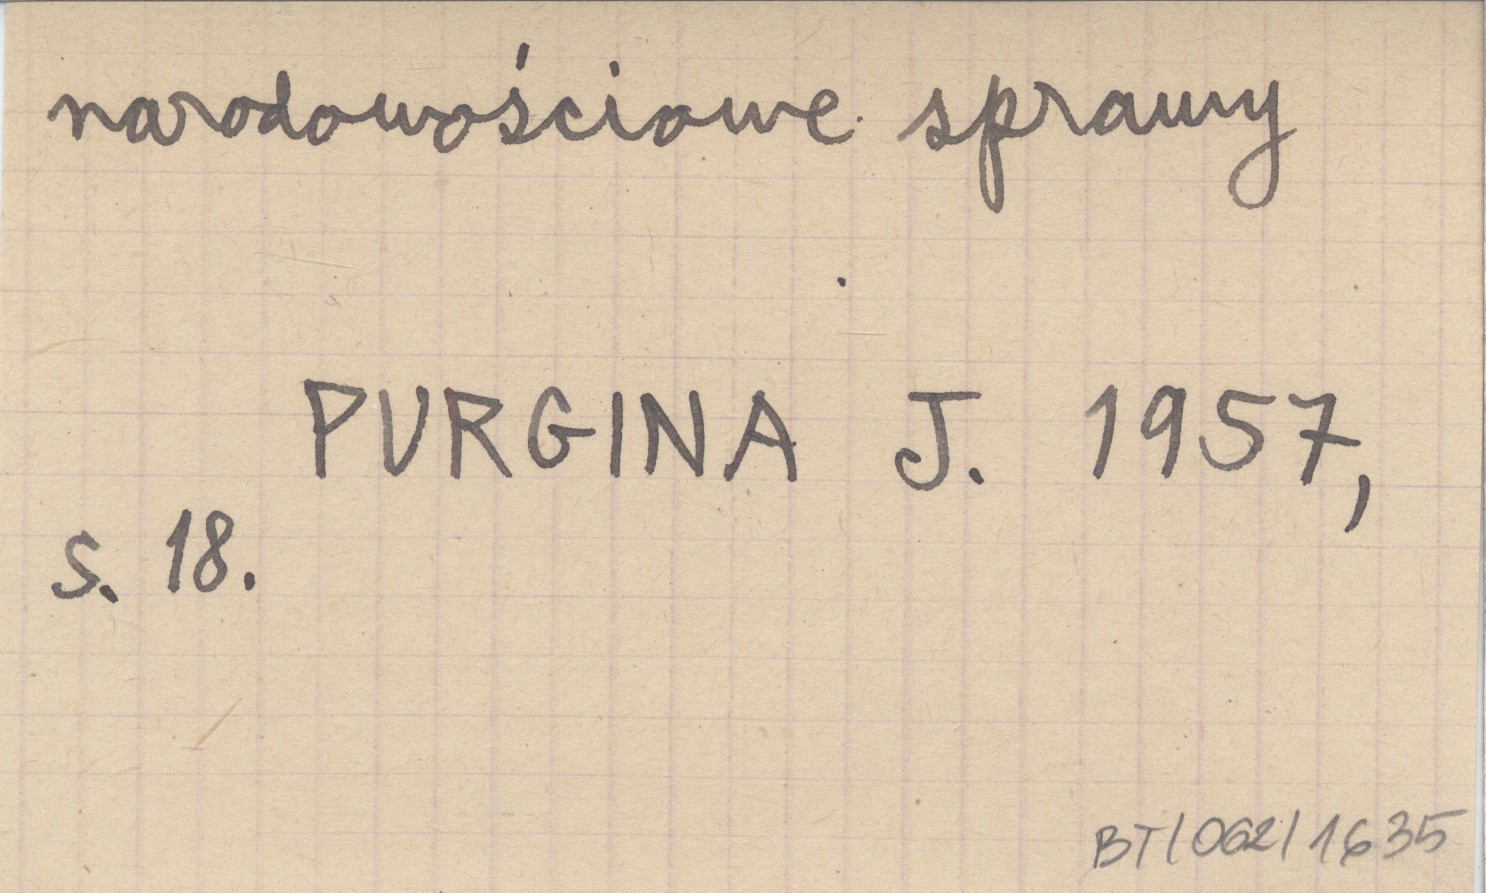 narodowościowe sprawy
PURGINA J. 1957,
s. 18.
BT/062/1635